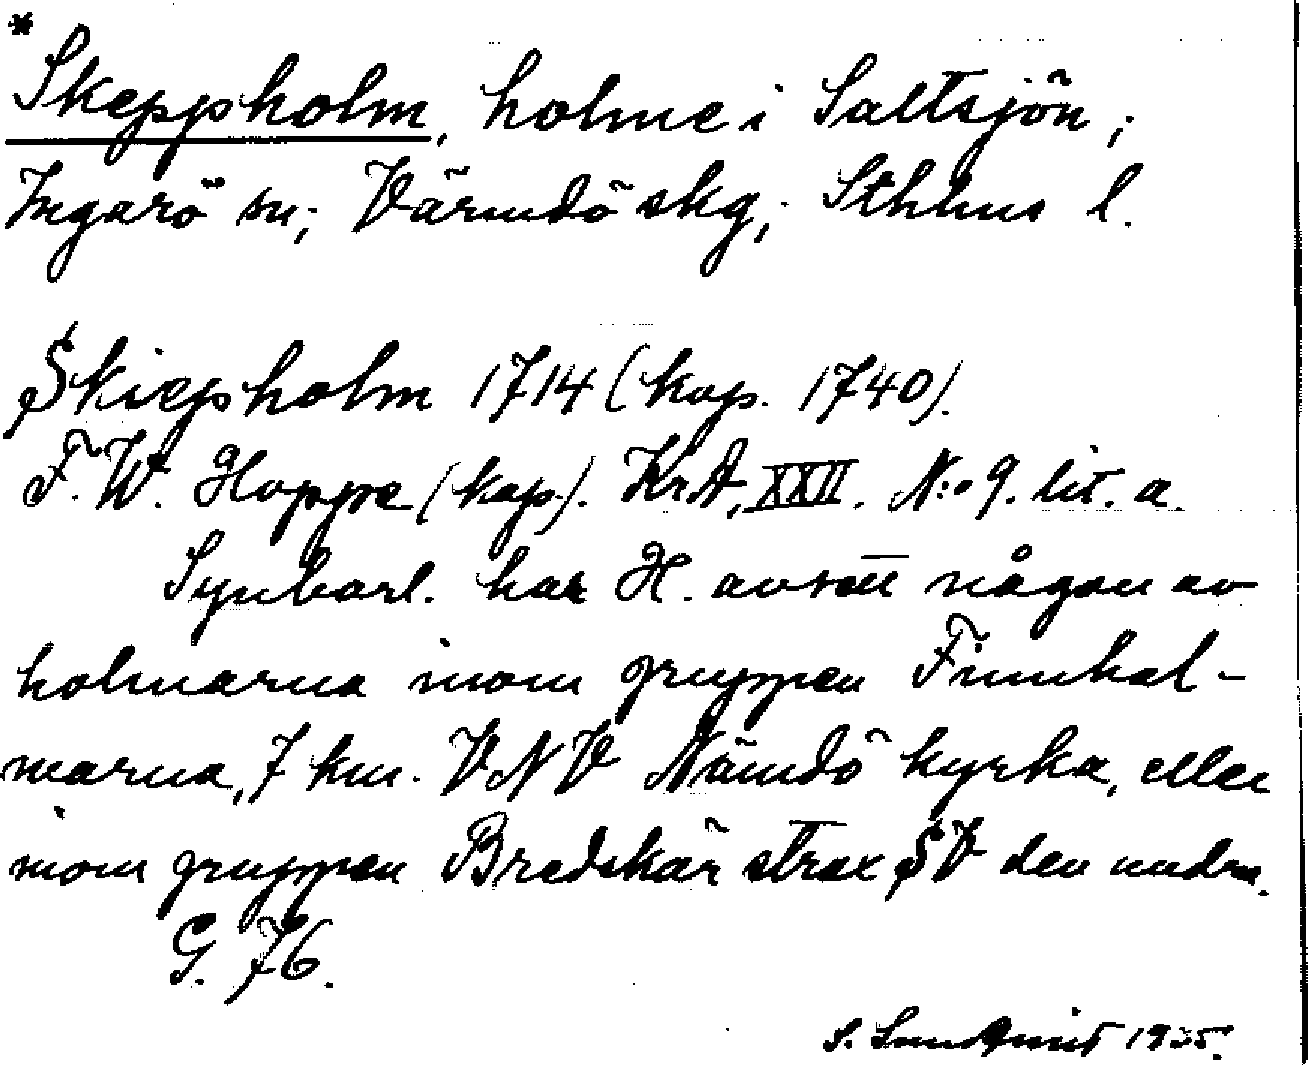 *
Skeppholm, holme i Saltsjön;
Ingarö sn; Värmdö skg; Sthlms l.
Skiepholm 1714 (kop. 1740).
F. W. Hoppe (kop.). KrA, XXII. N:o 9. lit. a.
Synbarl. har H. avsett någon av
holmarna inom gruppen Finnhol-
marna, 7 km. VNV Nämdö kyrka, eller
inom gruppen Bredskär strax SV den andra.
G. 76.
S. Sundqvist 1935.